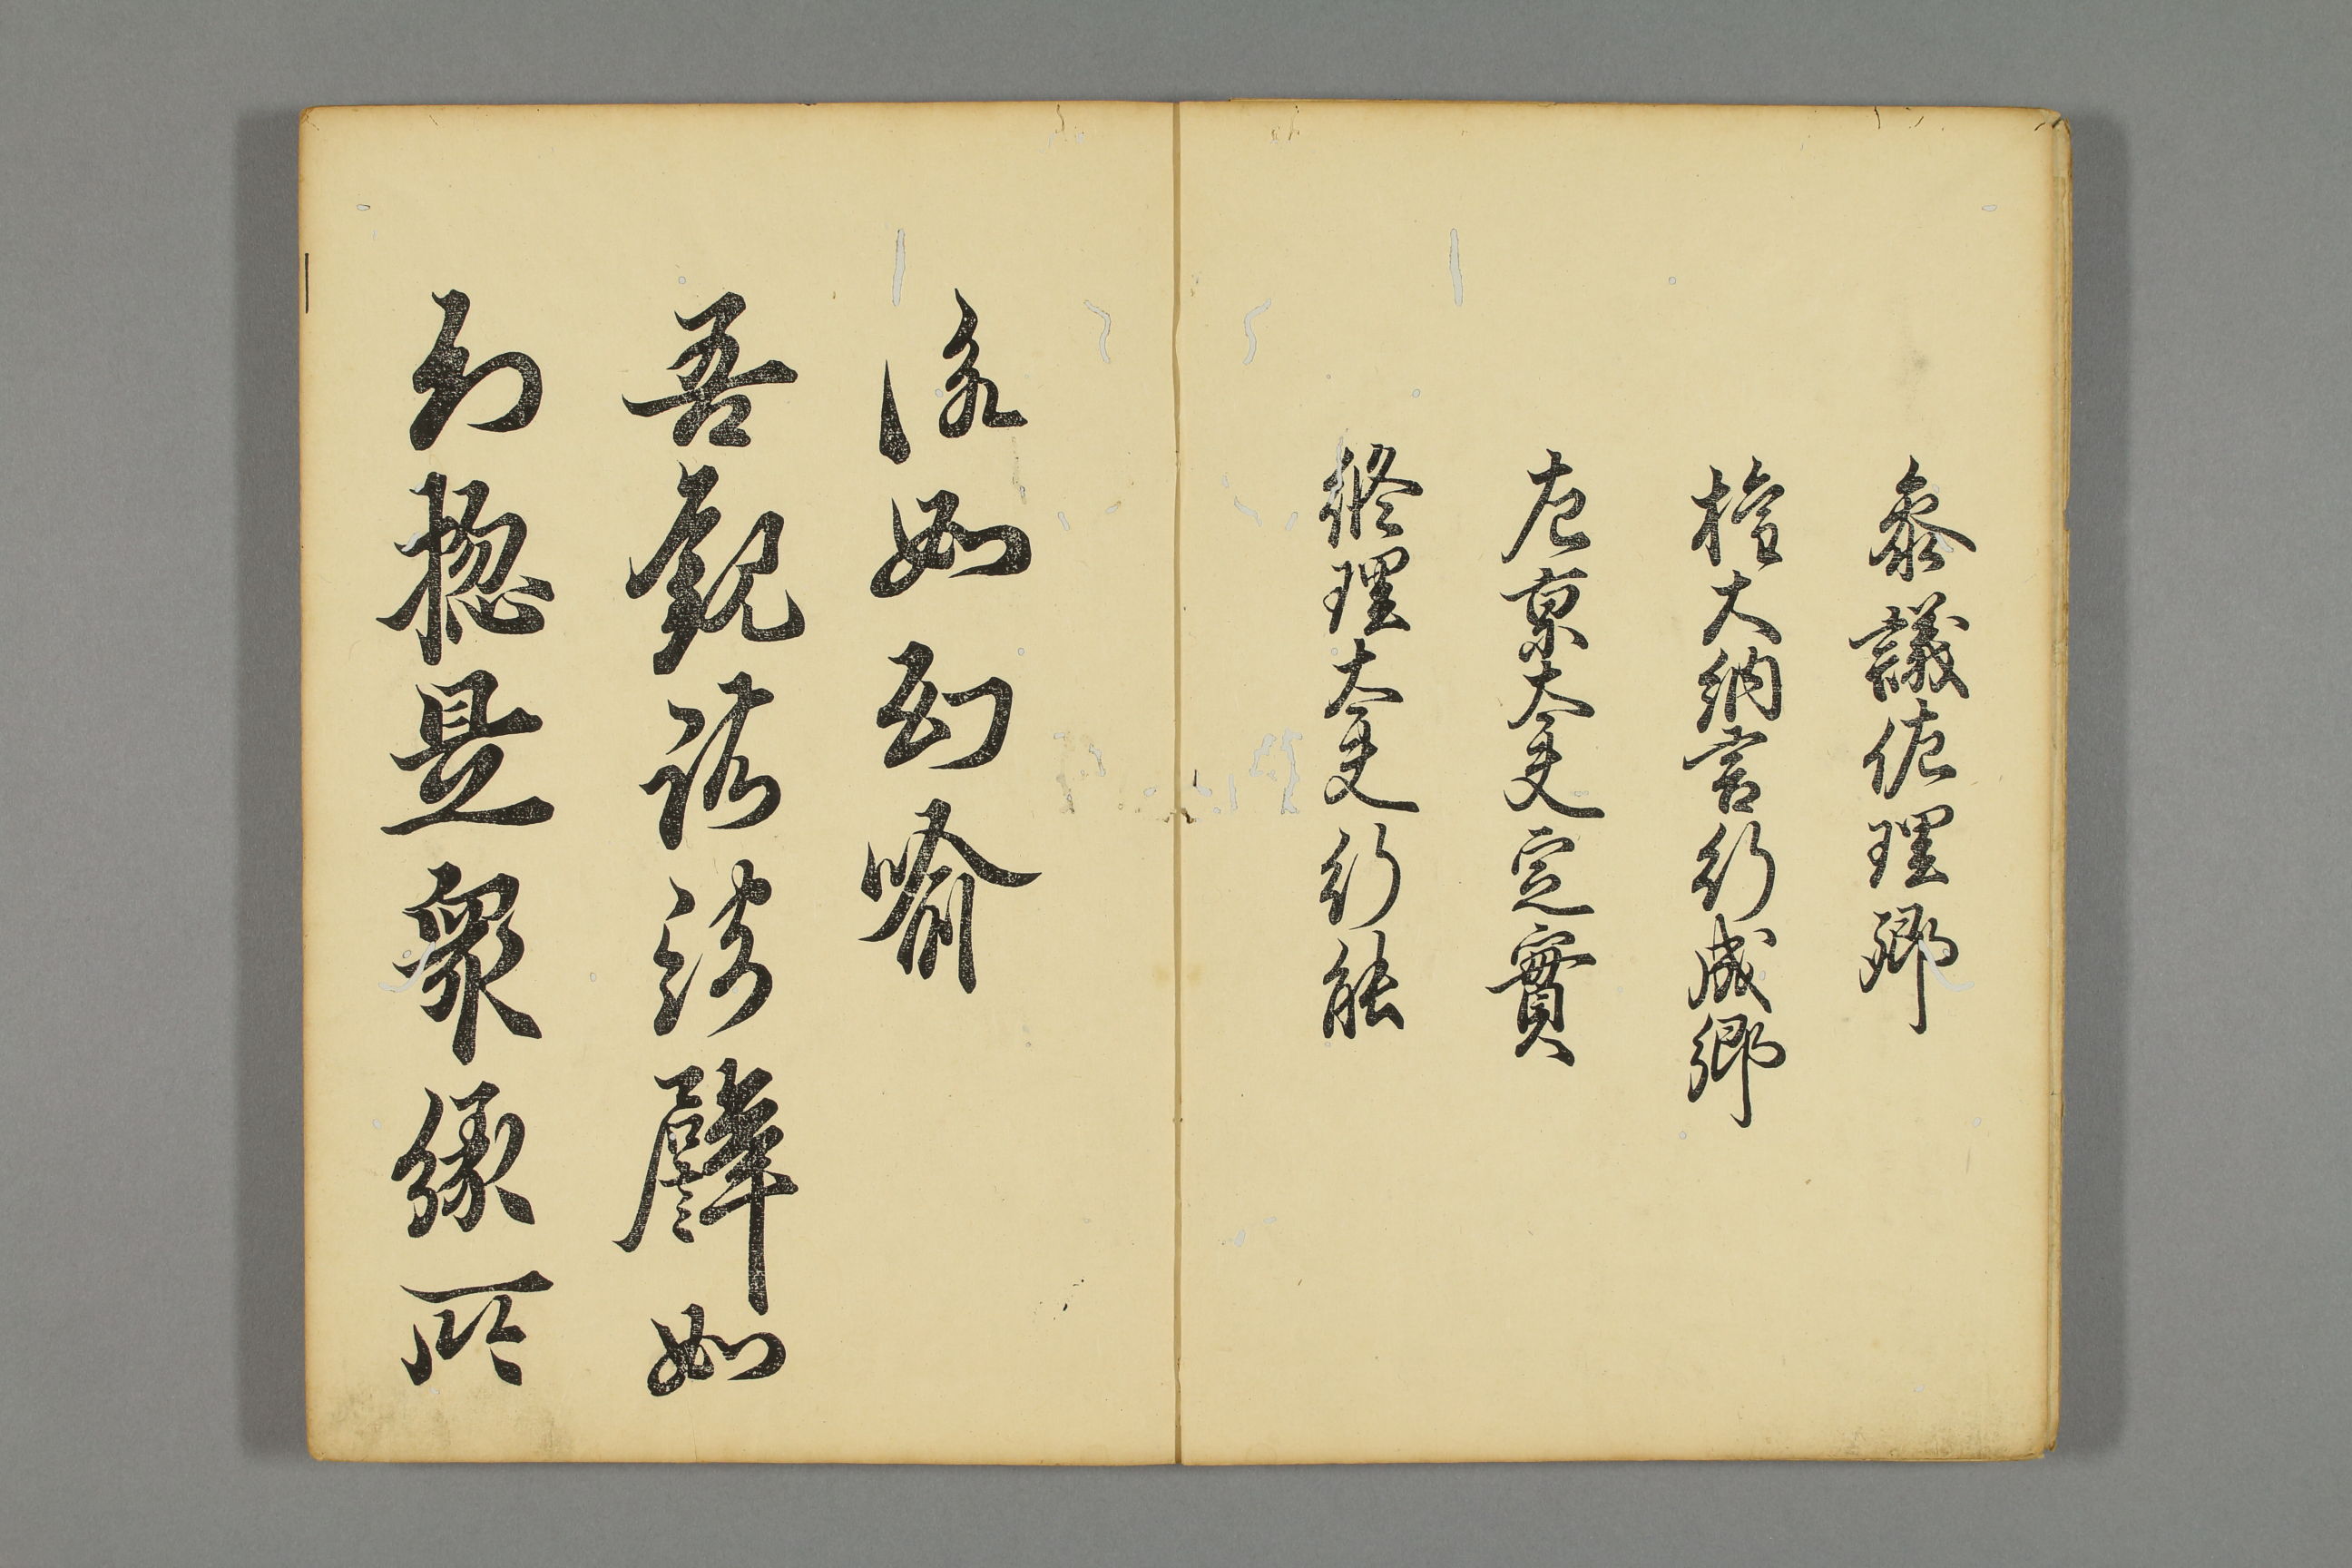 參議佐理卿
權大納言行成卿
左京大夫定實
修理大夫行能
詠如幻喩
吾觀諸法譬如
幻惣是衆緣所